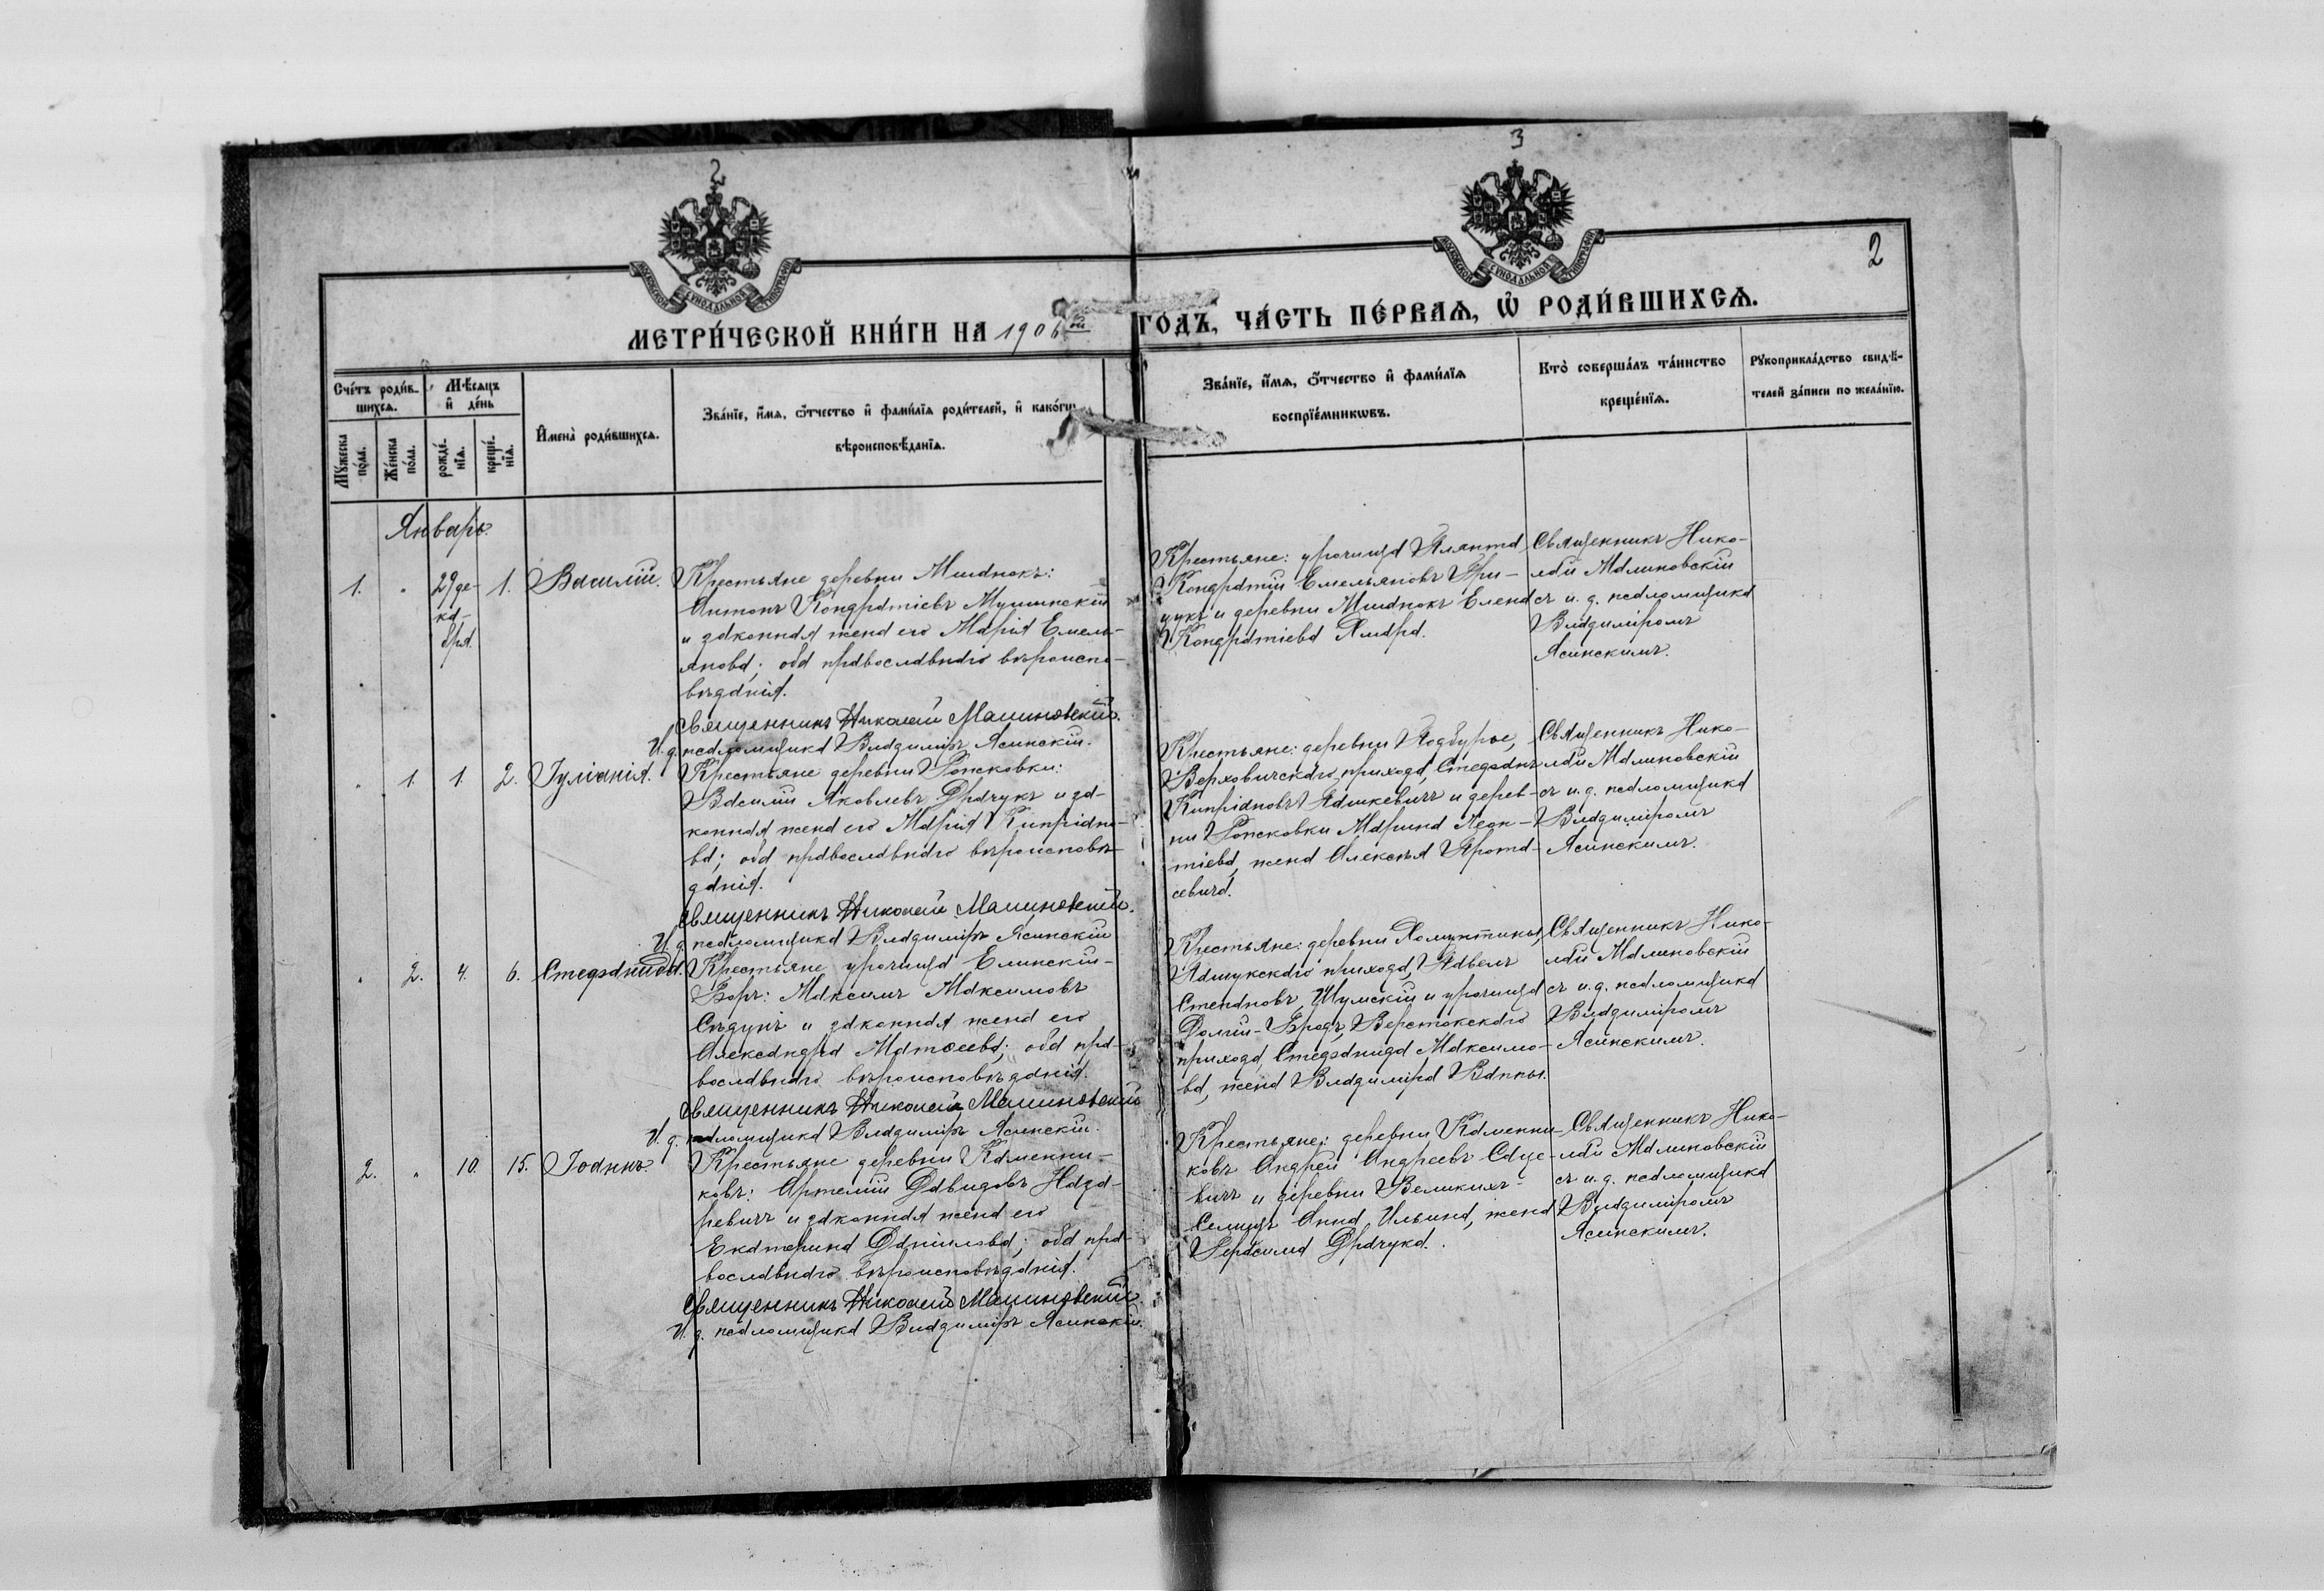 2
3
2
МОСКОВСКОЙ СѴНОДАЛЬНОЙ ТИПОГРАФІИ
МОСКОВСКОЙ СѴНОДАЛЬНОЙ ТИПОГРАФІИ
МЕТРИ́ЧЕСКОЙ КНИ́ГИ НА 1906 ой ГО́ДЪ, ЧА́СТЬ ПЕ́РВАѦ, Ѡ҆ РОДИ́ВШИХСѦ.
Сче́тъ роди́в-
шихсѧ.
Мѣ́сѧцъ
и҆ де́нь
Мꙋ́жеска
по́ла.
Же́нска
по́ла.
рожде́-
нїѧ.
креще́-
нїѧ.
И҆мена̀ роди́вшихсѧ.
Зва́нїе, и҆́мѧ, ѻ҆́тчество и҆ фами́лїѧ роди́телей, и҆ како́гѡ
вѣроисповѣ́данїѧ.
Зва́нїе, и҆́мѧ, ѻ҆́тчество и҆ фами́лїѧ
воспрїе́мникѡвъ.
Кто̀ соверша́лъ та́инство
креще́нїѧ.
Рꙋкоприкла́дство свидѣ́-
телей за́писи по жела́нїю.
Январь.
1. " 29 де-
ка-
бря. 1. Василій.
Крестьяне деревни Мшанокъ:
Антонъ Кондратіевъ Мушинскій
и законная жена его Марія Емель-
янова; оба православнаго вѣроиспо-
вѣданія.
Священникъ Николай Малиновскій.
И. д. псаломщика Владиміръ Ясинскій.
Крестьяне: урочища
Кондратій Емельяновъ Гри-
цукъ и деревни Мшанокъ Елена
Кондратіева
Священникъ Нико-
лай Малиновскій
съ и. д. псаломщика
Владиміромъ
Ясинскимъ.
" 1. 1 2. Іуліанія.
Крестьяне деревни Ропсковки:
Василій Яковлевъ Драчукъ и за-
конная жена его Марія Кипріано-
ва; оба православнаго вѣроисповѣ-
данія.
Священникъ Николай Малиновскій.
И. д. псаломщика Владиміръ Ясинскій
Крестьяне: деревни Подбурье,
Верховичскаго прихода, Стефанъ
Кипріановъ Пашкевичъ и дерев-
ни Ропсковки Марина Леон-
тіева, жена Алексѣя Прота-
севича.
Священникъ Нико-
лай Малиновскій
съ и. д. псаломщика
Владиміромъ
Ясинскимъ.
" 2. 4. 6. Стефанида.
Крестьяне урочища Елинскій-
Боръ: Максимъ Максимовъ
Сѣдунъ и законная жена его
Александра Матѳеева; оба пра-
вославнаго вѣроисповѣданія.
Священникъ Николай Малиновскій
И. д. псаломщика Владиміръ Ясинскій.
Крестьяне: деревни
Пашукскаго прихода, Павелъ
Степановъ Шумскій и урочища
Долгій-Бродъ, Верстокскаго
прихода, Стефанида Максимо-
ва, жена Владиміра Ваппы.
Священникъ Нико-
лай Малиновскій
съ и. д. псаломщика
Владиміромъ
Ясинскимъ.
2. " 10. 15. Іоаннъ.
Крестьяне деревни Каменни-
ковъ: Артемій Давидовъ Наза-
ревичъ и законная жена его
Екатерина Даніилова; оба пра-
вославнаго вѣроисповѣданія.
Священникъ Николай Малиновскій.
И. д. псаломщика Владиміръ Ясинскій.
Крестьяне: деревни Каменни-
ковъ Андрей Андреевъ Саце-
вичъ и деревни Великихъ-
Селищъ Анна Ильина, жена
Герасима Драчука.
Священникъ Нико-
лай Малиновскій
съ и. д. псаломщика
Владиміромъ
Ясинскимъ.